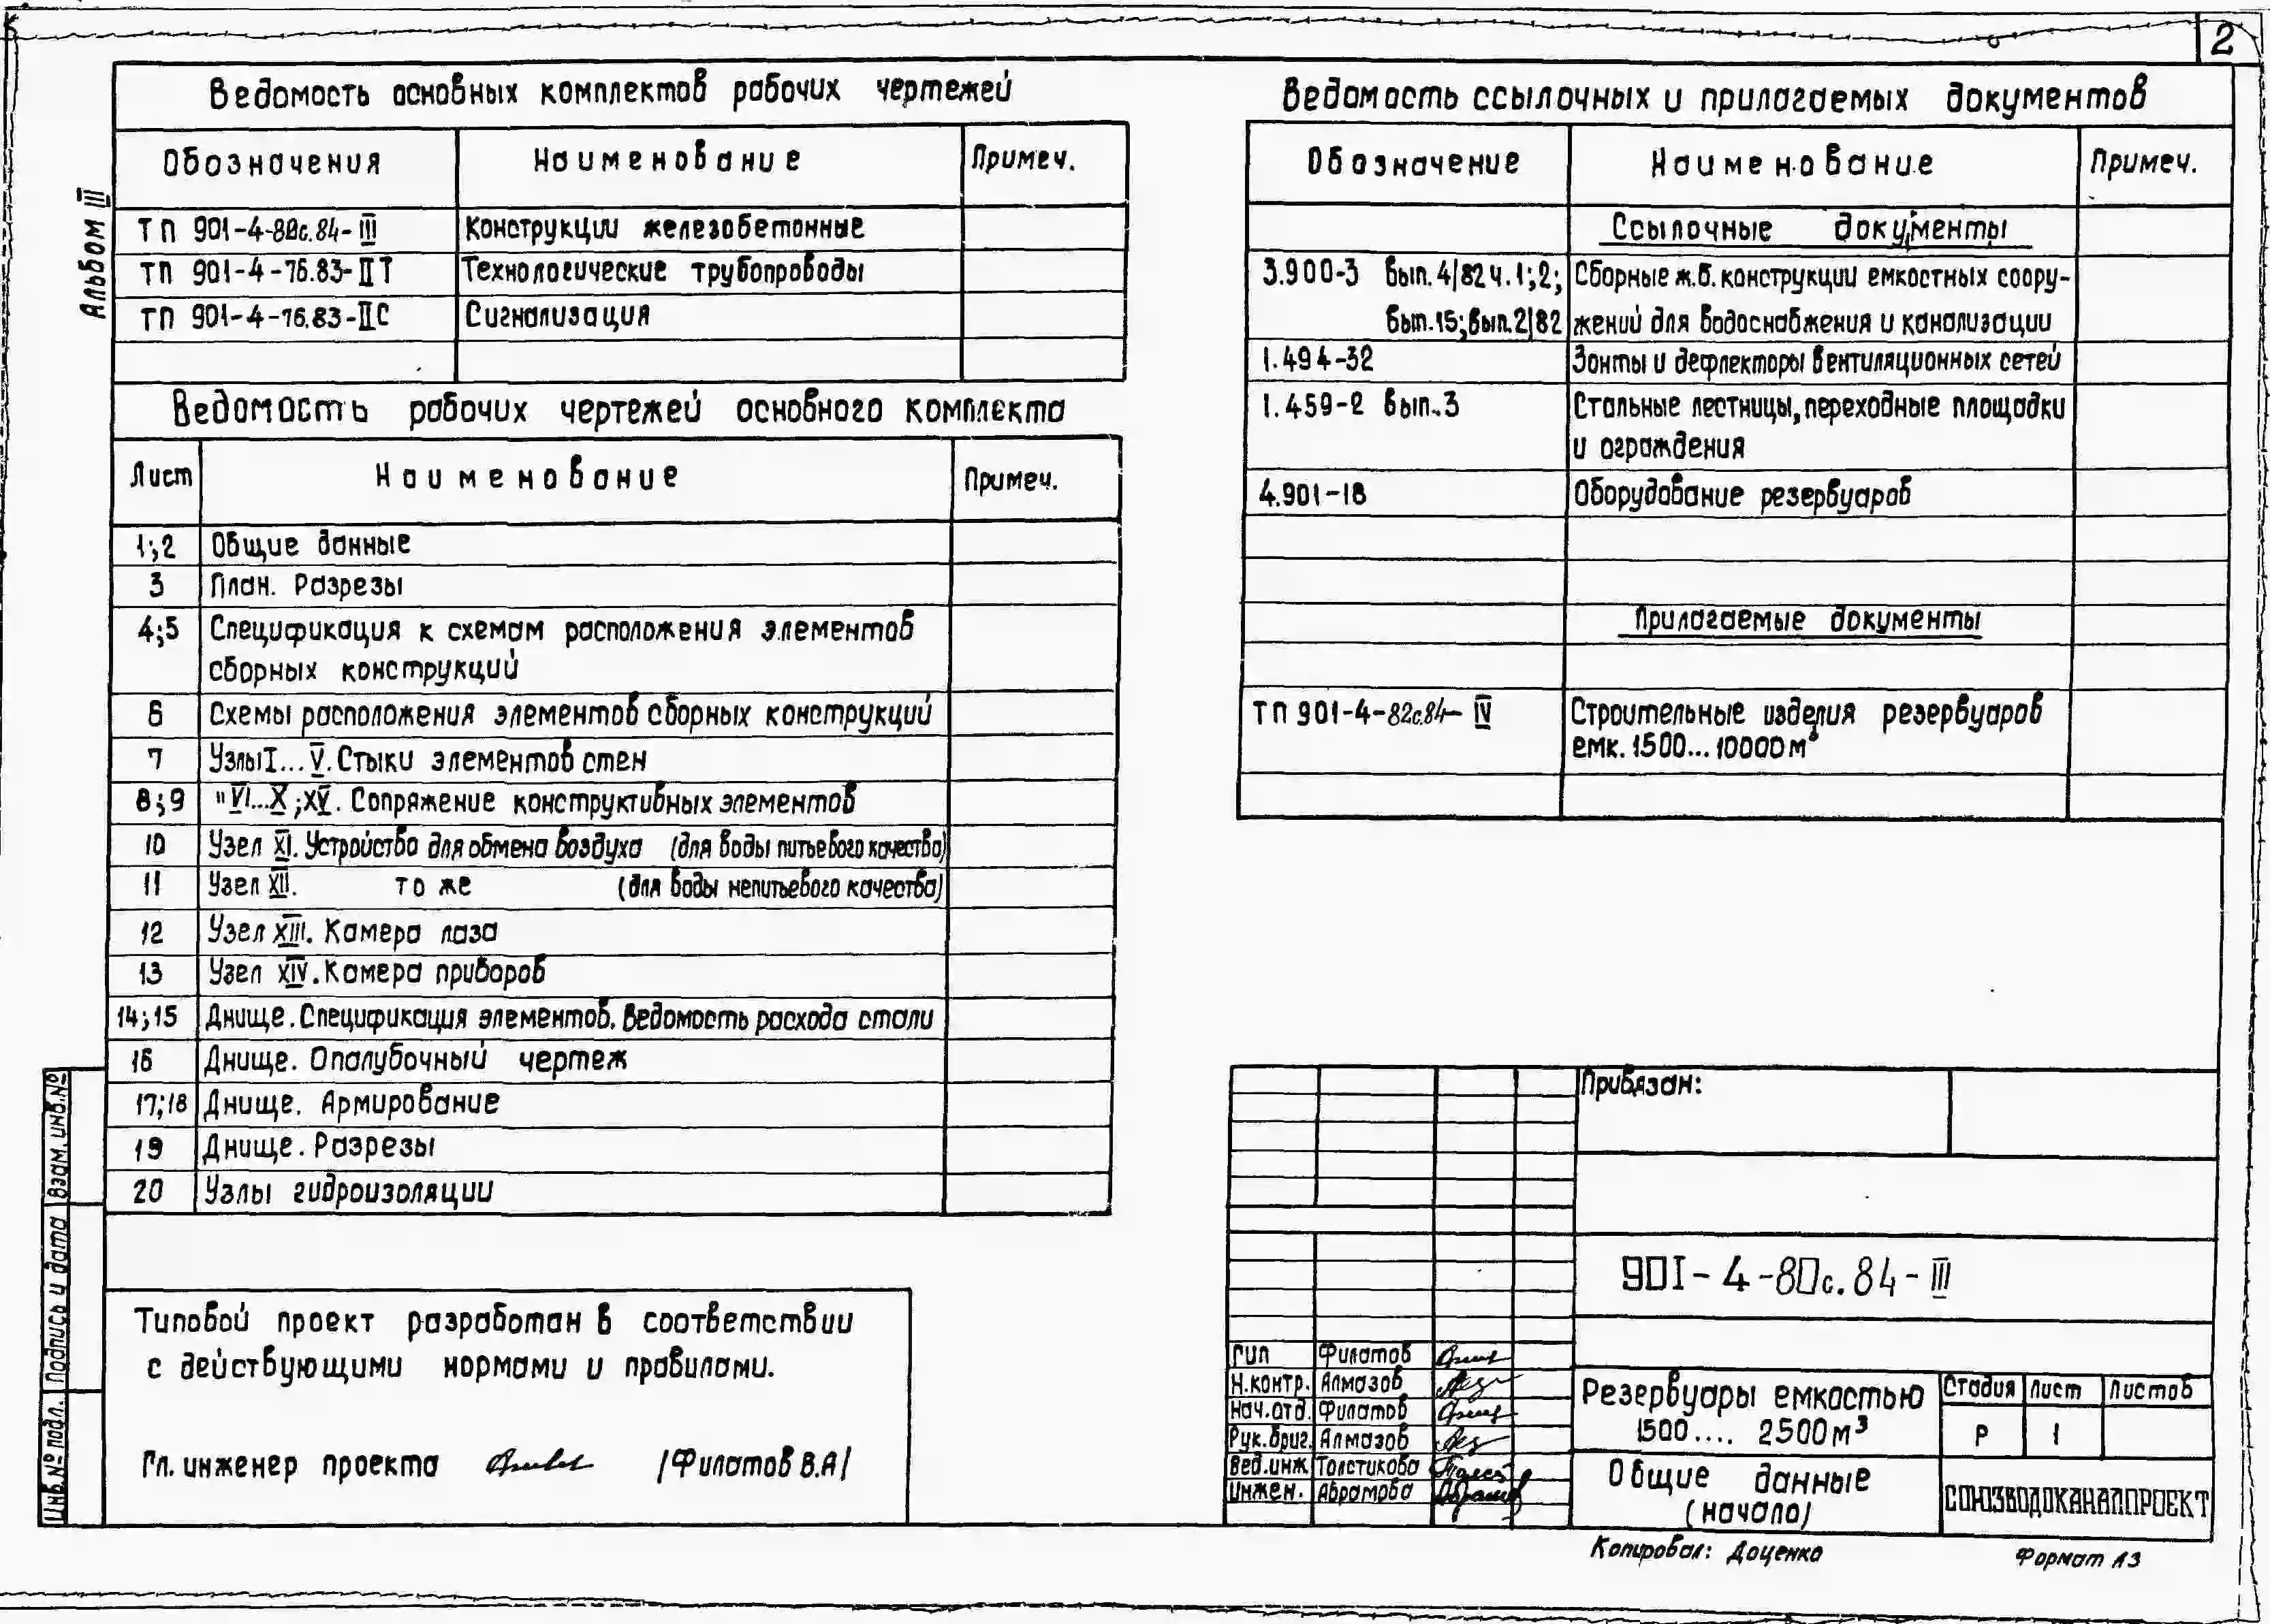 2
Альбом III
Ведомость основных комплектов рабочих чертежей
Обозначения Наименование Примеч.
ТП 901-4-80с.84-III Конструкции железобетонные
ТП 901-4-76.83-IIТ Технологические трубопроводы
ТП 901-4-76.83-IIС Сигнализация
Ведомость рабочих чертежей основного комплекта
Лист Наименование Примеч.
1;2 Общие данные
3 План. Разрезы
4;5 Спецификация к схемам расположения элементов
сборных конструкций
6 Схемы расположения элементов сборных конструкций
7 Узлы I...V. Стыки элементов стен
8;9 " VI...X; XV. Сопряжение конструктивных элементов
10 Узел XI. Устройство для обмена воздуха (для воды питьевого качества)
11 Узел XII. то же (для воды непитьевого качества)
12 Узел XIII. Камера лаза
13 Узел XIV. Камера приборов
14;15 Днище. Спецификация элементов. Ведомость расхода стали
16 Днище. Опалубочный чертеж
17;18 Днище. Армирование
19 Днище. Разрезы
20 Узлы гидроизоляции
Типовой проект разработан в соответствии
с действующими нормами и правилами.
Гл. инженер проекта /Филатов В.А/
Инв.№ подл. Подпись и дата Взам. инв.№
Ведомость ссылочных и прилагаемых документов
Обозначение Наименование Примеч.
Ссылочные документы
3.900-3 Вып.4/82 ч.1;2; Сборные ж.б. конструкции емкостных соору-
Вып.15; Вып.2/82 жений для водоснабжения и канализации
1.494-32 Зонты и дефлекторы вентиляционных сетей
1.459-2 Вып.3 Стальные лестницы, переходные площадки
и ограждения
4.901-18 Оборудование резервуаров
Прилагаемые документы
ТП 901-4-82с.84-IV Строительные изделия резервуаров
емк. 1500...10000 м³
Привязан:
901-4-80с.84-III
Гип Филатов
Н.контр. Алмазов
Нач.отд. Филатов
Рук.бриг. Алмазов
Вед.инж. Толстикова
Инжен. Абрамова
Резервуары емкостью
1500.... 2500 м³
Стадия Лист Листов
Р 1
Общие данные
(начало)
СОЮЗВОДОКАНАЛПРОЕКТ
Копировал: Доценко Формат А3